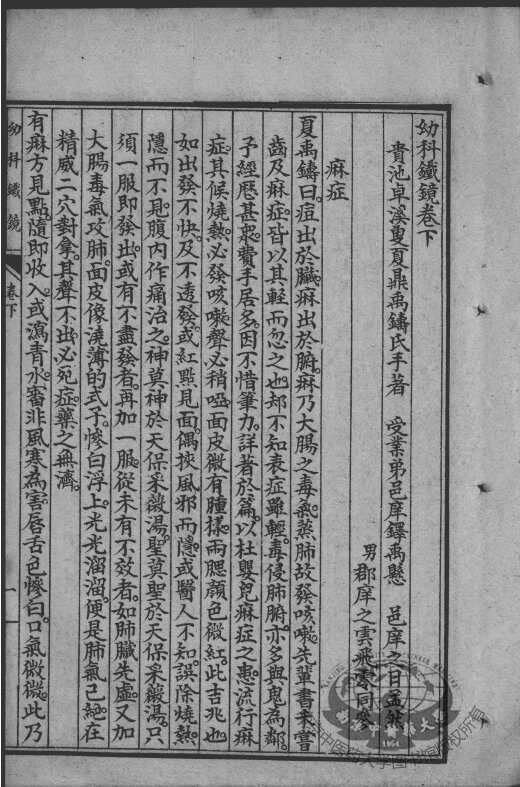 幼科鐵鏡卷下
貴池卓溪叟夏鼎禹鑄氏手著 受業弟邑庠鐸禹懸 邑庠之日孟然
男郡庠之雲飛雲同參
麻症
夏禹鑄曰痘出於臟麻出於腑麻乃大腸之毒氣蒸肺故發咳嗽先輩書未嘗
齒及麻症皆以其輕而忽之也却不知表症雖輕毒侵肺腑亦多與鬼為鄰
予經歷甚衆費手居多因不惜筆力詳著於篇以杜嬰兒麻症之患流行麻
症其候燒熱必發咳嗽聲必稍啞面皮微有腫樣兩腮顏色微紅此吉兆也
如出發不快及不透發或紅點見面偶挾風邪而隱或醫人不知誤除燒熱
隱而不見腹內作痛治之神莫神於天保采薇湯聖莫聖於天保采薇湯只
須一服即發出或有不盡發者再加一服從未有不效者如肺臟先虛又加
大腸毒氣攻肺面皮像澆薄的式子慘白浮上光光溜溜便是肺氣已絕在
精威二穴對拿其聲不出必死症藥之無濟
有麻方見點隨即收入或瀉青水審非風寒為害唇舌色慘白口氣微微此乃
幼科鐵鏡 卷下 一